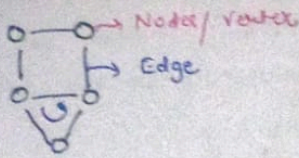 Node/ vertex
Edge